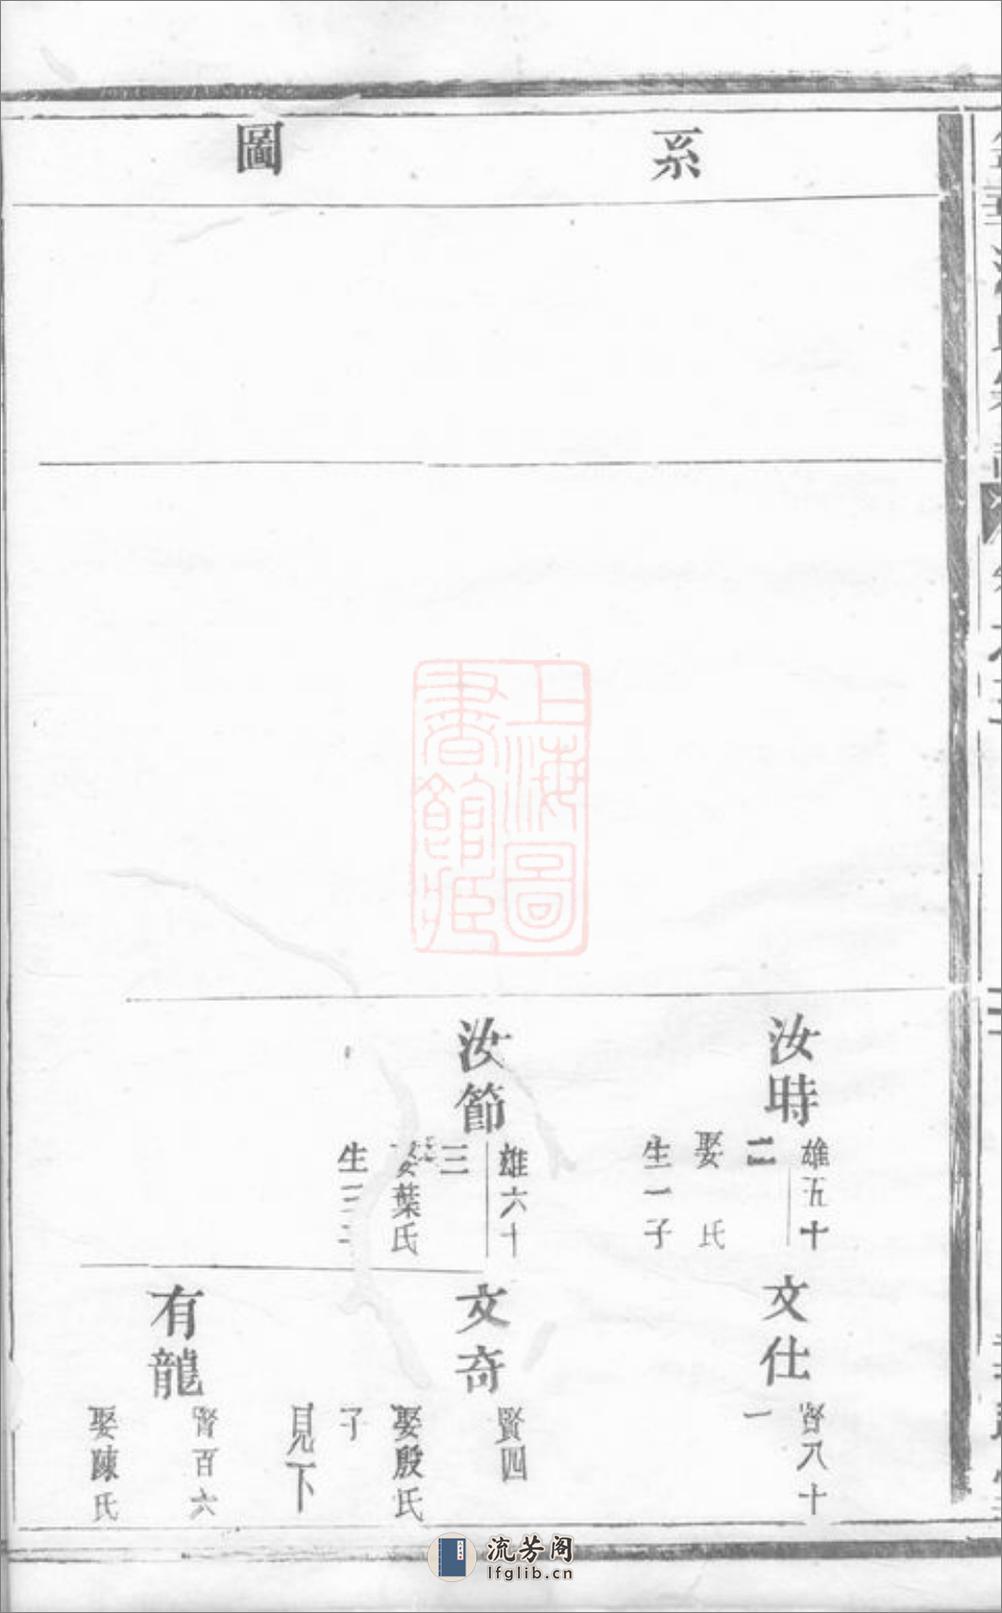 系圖
汝時
雄五十
二
娶 氏
生一子
汝節
雄六十
三
葉氏
生
文仕
八十
一
文奇
賢四
娶殷氏
子
見下
有龍
百六
娶陳氏
上海圖
書館藏
流芳阁
lfglib.cn